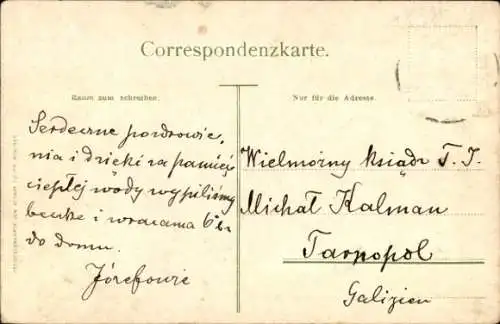 Correspondenzkarte.
Raum zum schreiben.
Nur für die Adresse.
Serdeczne pozdrowie,
nia i dzięki za pamięć
ciepłej wody wypiliśmy
i wracama
do domu.
Józefowie
Wielmożny ksiądz T. J.
Michał Kalman
Tarnopol
Galizien